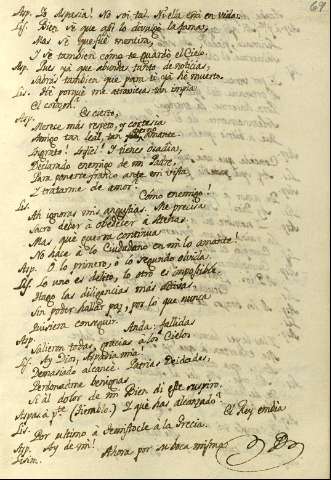 67
Asp. Yo Aspasia! No soi tal. Ni ella está en vida.
Lis. Bien sé que así lo divulgó la fama,
Mas sé que fué mentira,
Y sé tambien como te guardó el Cielo.
Asp. Pues ya que abonda tanto de noticias,
Sabrás tambien que para ti ya hé muerto.
Lis. Hé porqué me atraviesa tan impia
El corazon?
Asp. Es cierto,
Merece mas respeto, y cortesia
Amigo tan leal, tan amante
Ingrato! Infiel! Y tienes osadia,
Declarado enemigo de mi Padre,
Para ponerte franco ante mi vista,
Y tratarme de amor?
Lis. Como enemigo!
Ah ignoras mis angustias. Me precisa
Sacro deber á obedecer á Atenas
Mas que guerra continua
No hace á lo Ciudadano en mi lo amante!
Asp. O lo primero, ó lo segundo olvida.
Lis. Lo uno es delito, lo otro es imposible.
Hago las diligencias mas activas,
Sin poder hallar paz, por lo que nunca
Quisiera conseguir.
Asp. Anda, fallidas
Salieron todas, gracias á los Cielos
Lis. Ay Dios, Aspasia mia
Demasiado alcancé. Patrias Deidades,
Perdonadme benignas
Si al dolor de mi Bien di este suspiro.
Aspasia pte. (Tiemblo.) Y qué has alcanzado?
Lis. El Rey embia
Por ultimo á Temistocle á la Grecia.
Asp. Ay de mi!
Lisim. Ahora por su boca misma